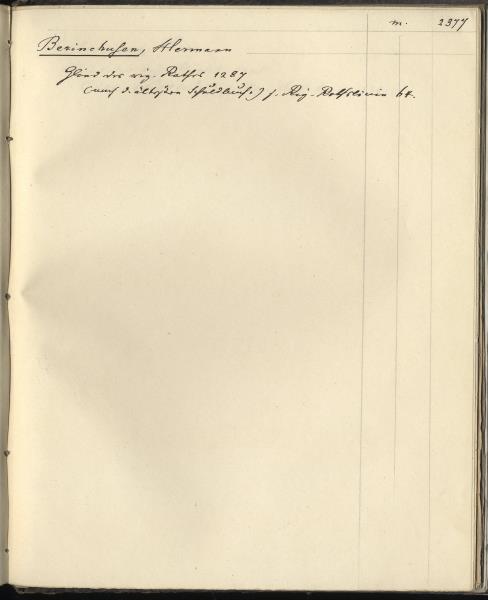 m. 2377
Berinchusen, Hermann
Glied des rig. Rathes 1287
(nach d. ältesten Schuldbuche) s. Rig. Rathslinie 64.